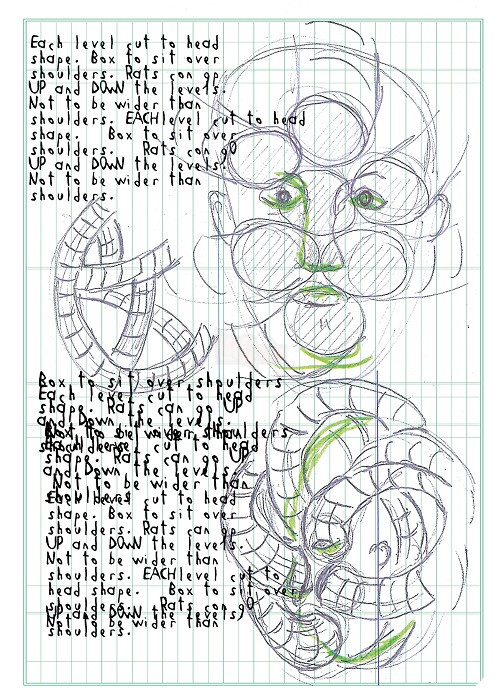 Each level cut to head
shape. Box to sit over
shoulders. Rats can go
UP and DOWN the levels.
Not to be wider than
shoulders. EACH level cut to head
shape. Box to sit over
shoulders. Rats can gO
UP and DOWN the levels.
Not to be wider than
shoulders.
Box to sit over shoulders
Each level cut to head
shape. Rats can go UP
and Down the levels.
shape. Rats can go
and Down the levels.
Not to be wider than
cut to head
shape. Box to sit over
shoulders. Rats can go
UP and DOWN the levels.
Not to be wider than
shoulders. EACH level cut to
head shape. Box to sit over
shoulders. Rats can go
UP and DOWN the levels.
Not to be wider than
shoulders.